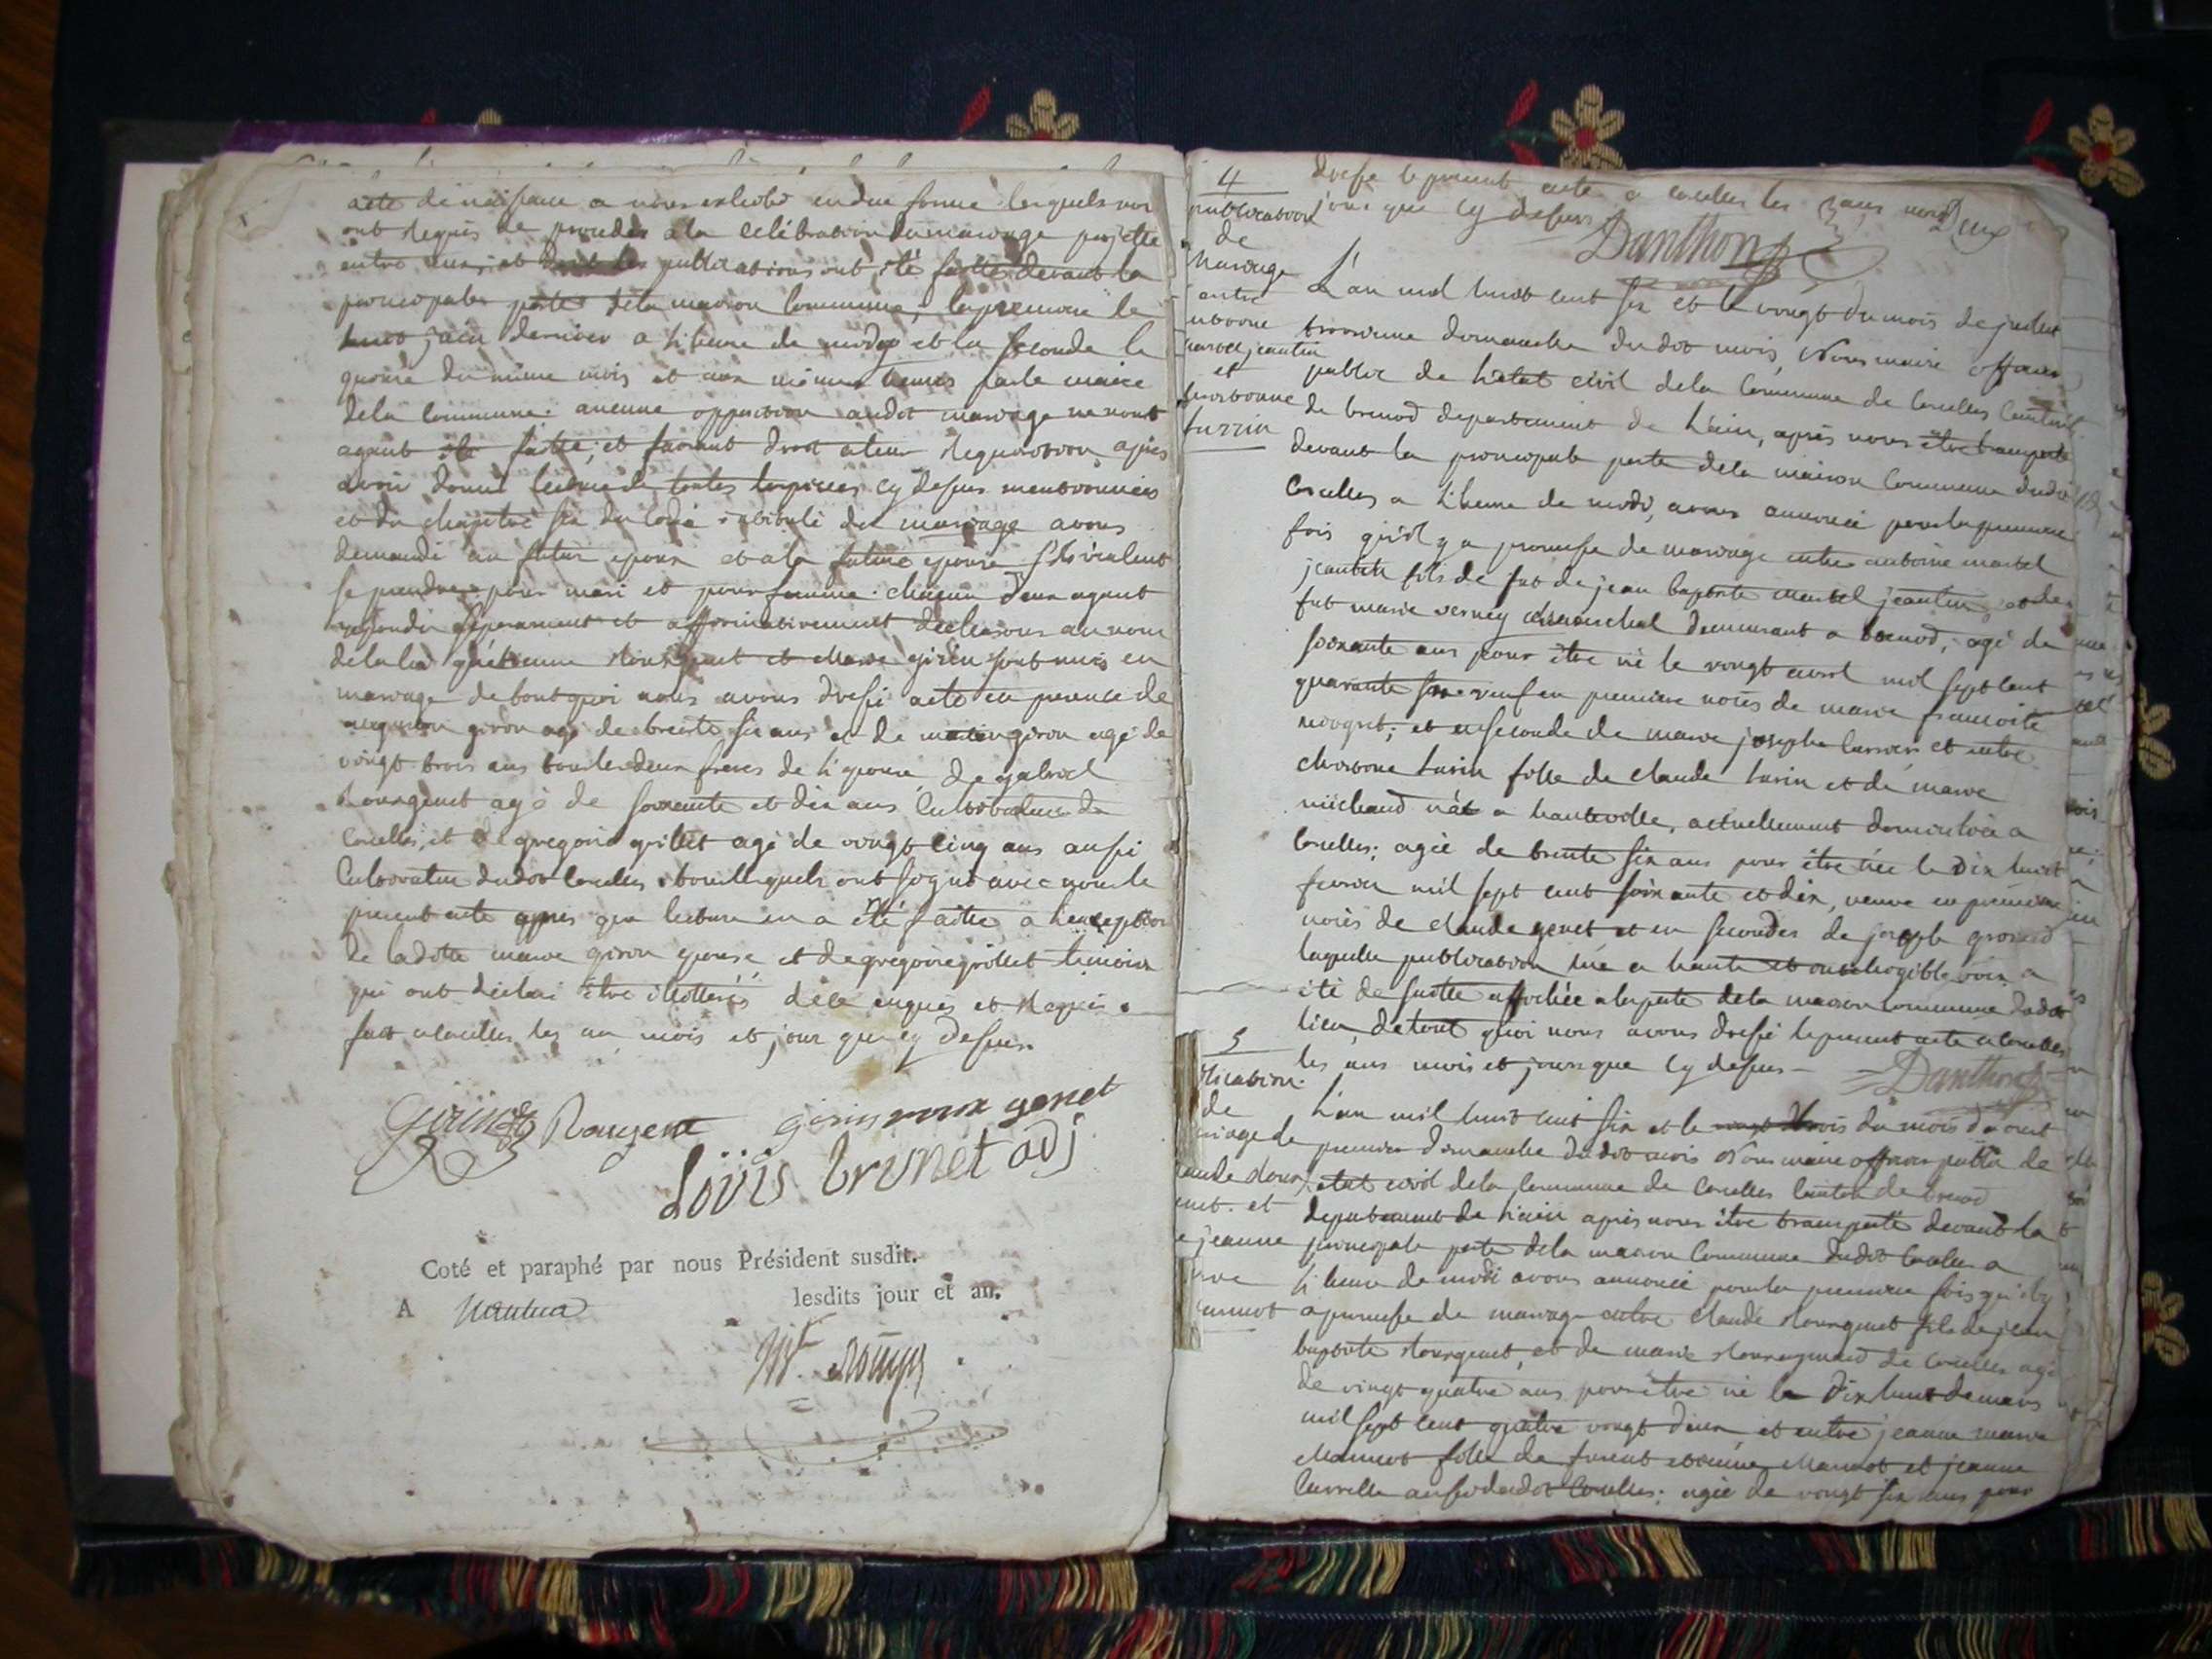 acte de naissance a nous exhibé en due forme lesquels nous
ont requis de proceder a la celébration du mariage projetté
entre eux, et dont les publications ont été faittes devant la
principale porte dela maison commune; la premiere le
huit juin dernier a l'heure de midy et la seconde le
quinze du même mois et aux mêmes heures par le maire
dela commune. aucune opposition audit mariage ne nous
ayant été faitte; et faisant droit a leur requisition, apres
avoir donné lecture de toutes les pieces cy dessus mentionnées
et du chapitre six du code intitulé du mariage avons
demandé au futur epoux et a la future epouse s'ils veulent
se prendre pour mari et pour femme: chacun d'eux ayant
repondu séparement et affirmativement declarons au nom
dela loi que rougemet et Marie girin sont unis en
mariage de tout quoi nous avons dressé acte en presence de
giron agé de trente six ans et de giron agé de
vingt trois ans tous les deux freres de l'epouse, de gabriel
Rougemet agé de soixante et dix ans Cultivateur de
Corcelles, et de gregoire grillet agé de vingt cinq ans aussi
Cultivateur dudit Corcelles tous lesquels ont signé avec nous le
present acte apres que lecture en a été faitte, a l'exception
de laditte marie giron epouse et de gregoire grillet temoin
qui ont déclaré être illitterés dele enquis et requis.
fait a Corcelles les an mois et jour que cy dessus.
Rougemt
Loüis brunet adj
Coté et paraphé par nous Président susdit.
A Nantua lesdits jour et an.
4
publication
de
mariage
entre
antoine
martel jeantin
et
turrin
dressé le present acte a Corcelles les an mois
jour que cy dessus
Deux
Danthon
L'an mil huit cent six et le vingt du mois de juillet
troisieme dimanche dudit mois, Nous maire officier
public de l'état civil dela Commune de Corcelles Canton
de brenod departement de l'ain, après nous être transporté
devant la principale porte dela maison Commune dudit
Corcelles a l'heure de midi, avons annoncé pour la premiere
fois qu'il y a promesse de mariage entre antoine martel
jeantin fils de fut de jean baptiste martel jeantin, et de
fut marie verney marechal demeurant a brenod, agé de
soixante ans pour être né le vingt avril mil sept cent
quarante six veuf en premiere noces de marie francoise
et en seconde de marie josephe et entre
turin fille de claude turin et de marie
michaud née a hauteville, actuellement domiciliée a
Corcelles; agée de trente six ans pour être née le dix huit
fevrier mil sept cent soixante et dix, veuve en premiere
noces de claude genet et en secondes de joseph
laquelle publication lue a haute et intelligible voix a
été de suitte affichée a la porte dela maison commune dudit
lieu, de tout quoi nous avons dressé le present acte a Corcelles
les ans mois et jours que cy dessus - Danthon
5
de
L'an mil huit cent six et le trois du mois d'aout
premier dimanche dudit mois Nous maire officier public de
l'etat civil dela Commune de Corcelles Canton de brenod
departement de l'ain après nous être transporté devant la
jeanne
principale porte dela maison Commune dudit Corcelles a
l'heure de midi avons annoncé pour la premiere fois qu'il y
a promesse de mariage entre Claude Rougemet fils de jean
baptiste Rougemet, et de marie de Corcelles agé
de vingt quatre ans pour être né le dix huit de mars
mil sept cent quatre vingt deux, et entre jeanne marie
Mannot fille de furent etienne Mannot et jeanne
aussi dudit Corcelles; agée de vingt six ans pour